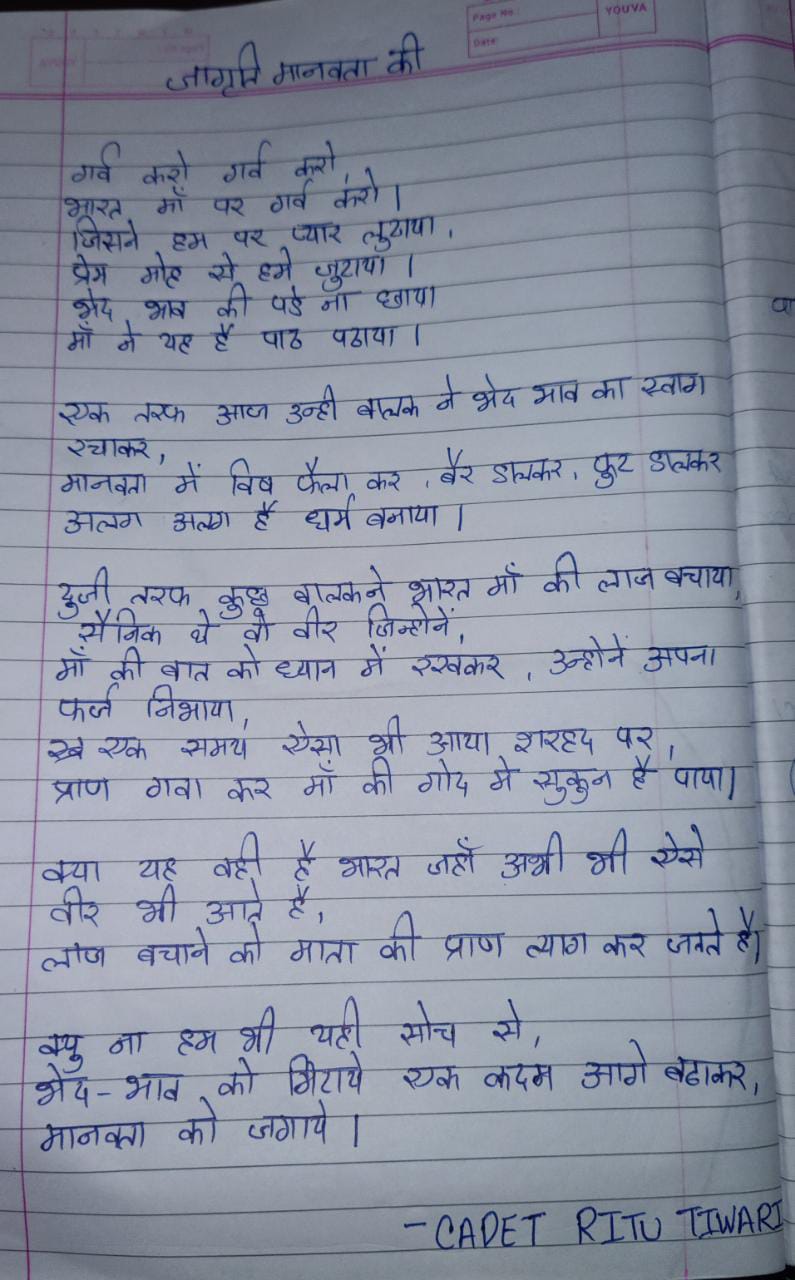 Page No.:
YOUVA
Date:
जागृति मानवता की
गर्व करो गर्व करो,
भारत माँ पर गर्व करो।
जिसने हम पर प्यार लुटाया,
प्रेम मोह से हमे जुटाया।
भेद भाव की पडे ना छाया
माँ ने यह है पाठ पढाया।
एक तरफ आज उन्ही बालक ने भेद भाव का स्वाग
रचाकर,
मानवता में विष फैला कर, बैर डालकर, फुट डालकर
अलग अलग है धर्म बनाया।
दुजी तरफ कुछ बालकने भारत माँ की लाज बचाया,
सैनिक थे वो वीर जिन्होनें,
माँ की बात को ध्यान में रखकर, उन्होनें अपना
फर्ज निभाया,
एक समय ऐसा भी आया शरहद पर,
प्राण गवा कर माँ की गोद मे सुकुन है पाया।
क्या यह वही है भारत जहाँ अभी भी ऐसे
वीर भी आते है,
लाज बचाने को माता की प्राण त्याग कर जाते है।
क्यु ना हम भी यही सोच से,
भेद-भाव को मिटाये एक कदम आगे बढाकर,
मानवता को जगाये।
-CADET RITU TIWARI